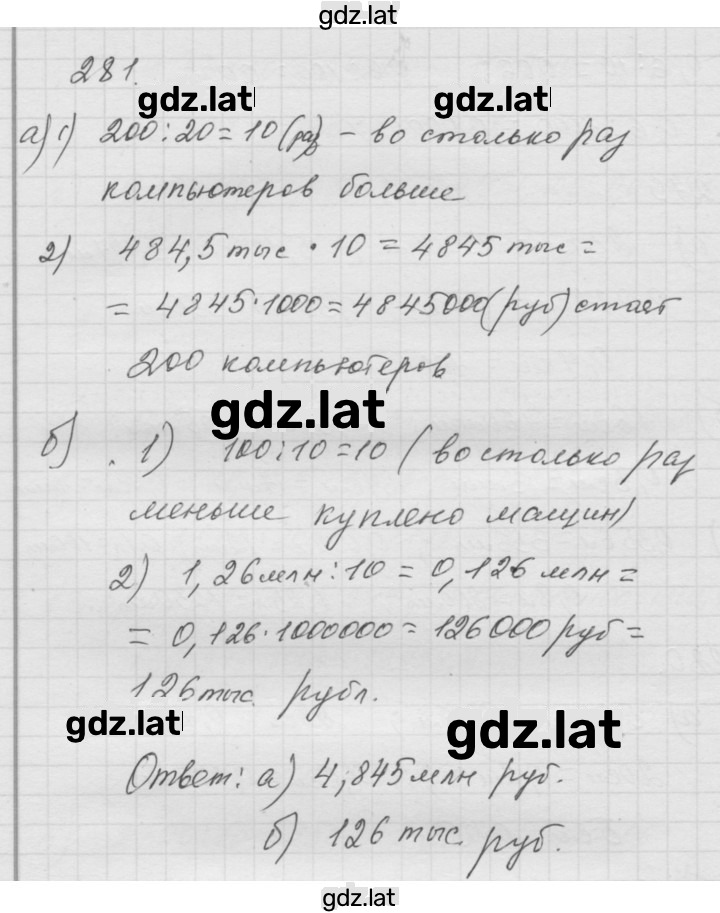 gdz.lat
281.
gdz.lat gdz.lat
а) 1) 200:20=10(раз) - во столько раз
компьютеров больше
2) 484,5 тыс · 10 = 4845 тыс =
= 4845·1000=4845000(руб) стает
200 компьютеров
gdz.lat
б) . 1) 100:10=10 (во столько раз
меньше куплено машин)
2) 1,26млн:10 = 0,126 млн =
= 0,126·1000000=126000 руб =
126 тыс. рубл.
gdz.lat gdz.lat
Ответ: а) 4,845млн руб.
б) 126 тыс. руб.
gdz.lat